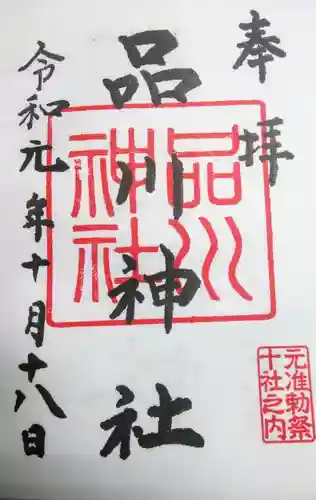 奉拝
品川神社
令和元年十月十八日
品川神社
元准勅祭
十社之内